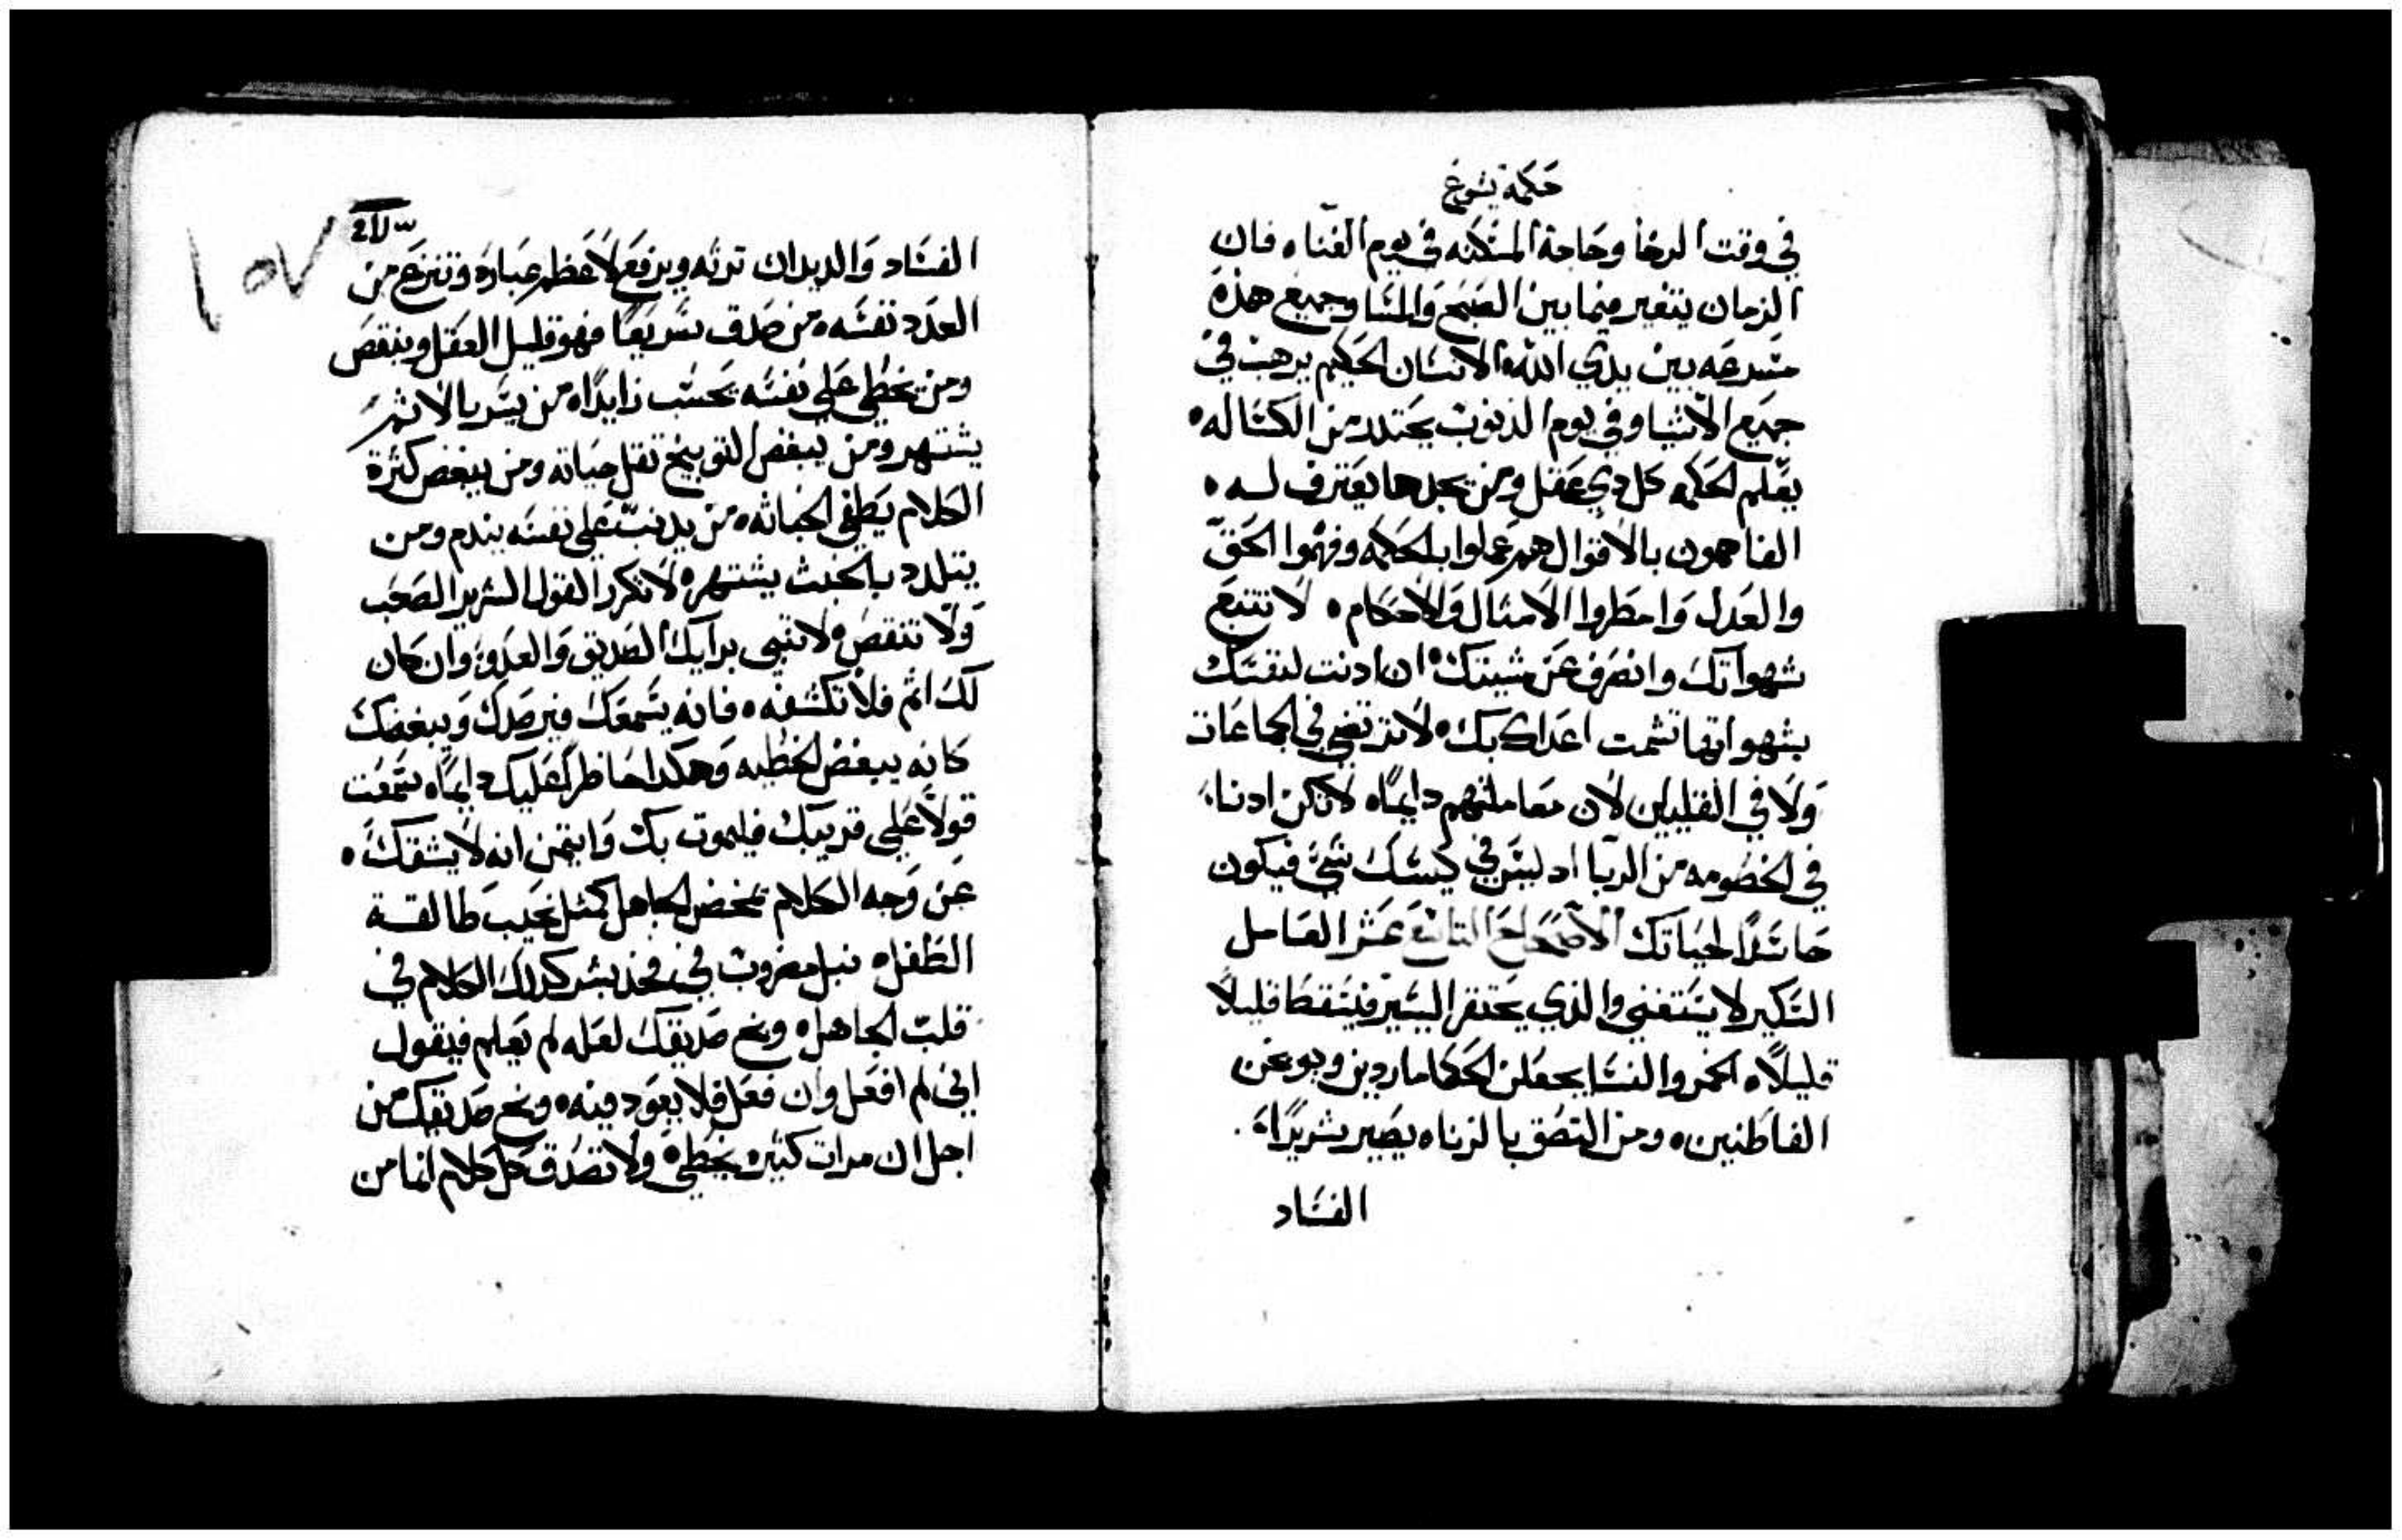 حكمة يشوع
في وقت الرخا وحاجة المسكنه في يوم الغنا ٥ فان
الزمان يتغير فيما بين الصبح والمسا وجميع هذه
مسرعه بين يدي الله ٥ الانسان الحكيم يرهب في
جميع الاشيا وفي يوم الذنوب يحتدر من الكسا له ٥
يعلم الحكمه كل دي عقل ومن يجدها يعترف له ٥
الفاهمون بالاقوال هم عملوا بالحكمه وفهموا الحق
والعدل وامطروا الامثال والاحكام ٥ لا تتبع
شهواتك وانصرف عن مشيتك ٥ ان ادنت لنفسك
بشهواتها تشمت اعداك بك ٥ لا ترتضي في الجماعات
ولا في القليلين لان معاملتهم دايمًا ٥ لا تكن ادنا
في الخصومه من الربا اد ليس في كيسك شي فيكون
حاسدًا لحياتك الاصحاح التاسع عشر العامل
السكير لا يستغني والذي يحتقر اليسير فيسقط قليلًا
قليلًا ٥ الخمر والنسا يجعلن الحكما ماردين ويوبخن
الفاطنين ٥ ومن التصق بالزناه يصير شريرًا ٥
الفساد
١٥٧
الفساد والديدان ترثه ويرفع لاعظم عباره وتنزع من
العدد نفسه ٥ من صدق سريعًا فهو قليل العقل وينقص
ومن يخطي علي نفسه يحسب زايدًا ٥ من يسر بالاثم
يشتهر ومن يبغض التوبيخ تقل حياته ومن يبغض كثرة
الكلام يطفي الخباثه ٥ من يدنب علي نفسه يندم ومن
يتلدد بالخبث يشتهر ٥ لا تكرر القول الشرير الصعب
ولا تنقص ٥ لا تنبي برايك الصديق والعدو ٥ وان كان
لك اثم فلا تكشفه ٥ فانه يسمعك فيرصدك ويبغضك
كانه يبغض الخطيه وهكدا حاضرًا عليك دايمًا ٥ سمعت
قولًا علي قريبك فليموت بك وايتمن انه لا يشقك ٥
عن وجه الكلام تمخض الجاهل كمثل نحيب طالقة
الطفل ٥ نبل مضروب في فخذ بشر كدلك الكلام في
قلب الجاهل ٥ وبخ صديقك لعله لم يعلم فيقول
اني لم افعل وان فعل فلا يعود فيه ٥ وبخ صديقك من
اجل ان مرات كثيره يخطي ٥ ولا تصدق كل كلام انما من